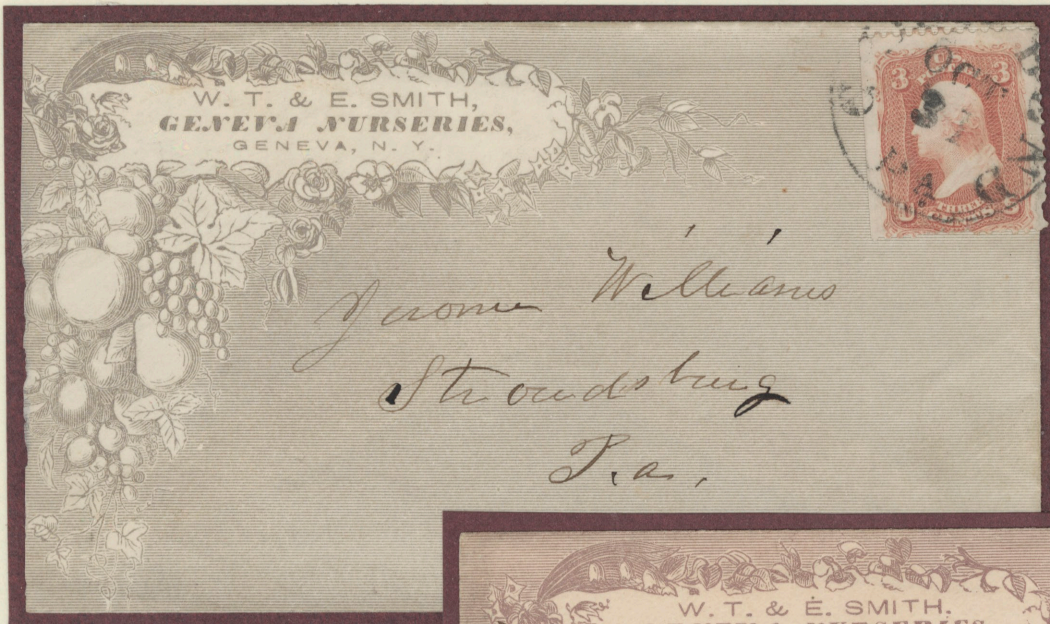 W. T. & E. SMITH,
GENEVA NURSERIES,
GENEVA, N. Y.
3 3
OCT
Jerome Williams
Stroudsburg
Pa,
W. T. & E. SMITH.